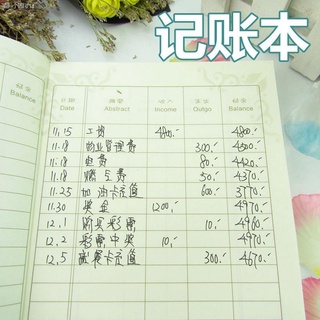 记账本
结余
Balance
日期 摘要 收入 支出 结余
Date Abstract Income Outgo Balance
11.15 工资 4800.- 4800.-
11.18 物业管理费 300.- 4500.-
11.18 电费 80.- 4420.-
11.18 燃气费 50.- 4370.-
11.25 加油卡充值 600.- 3770.-
11.30 奖金 1200.- 4970.-
12.1 购买彩票 10.- 4960.-
12.2 彩票中奖 10.- 4970.-
12.5 就餐卡充值 300.- 4670.-